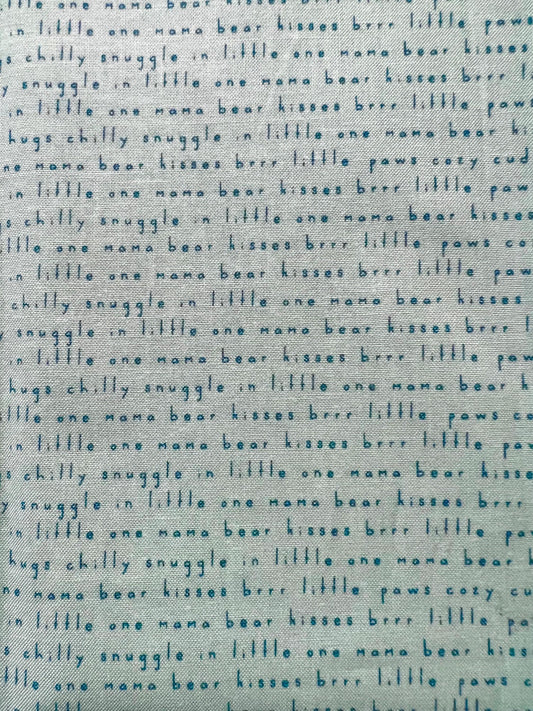 little one mama bear kisses brrr little paws
in little one mama bear kisses brrr little paws
chilly snuggle in little one mama bear kisses
snuggle in little one mama bear kisses brrr
in little one mama bear kisses brrr little paws
hugs chilly snuggle in little one mama bear
one mama bear kisses brrr little paws cozy cud
in little one mama bear kisses brrr little paw
chilly snuggle in little one mama bear kisses
little one mama bear kisses brrr little paws co
in little one mama bear kisses brrr little paw
chilly snuggle in little one mama bear kisses
snuggle in little one mama bear kisses brrr
in little one mama bear kisses brrr little paw
hugs chilly snuggle in little one mama bear
little one mama bear kisses brrr little paws co
in little one mama bear kisses brrr little pa
chilly snuggle in little one mama bear kisse
snuggle in little one mama bear kisses brrr
in little one mama bear kisses brrr little pa
hugs chilly snuggle in little one mama bear
ne mama bear kisses brrr little paws cozy cu
in little one mama bear kisses brrr little pa
chilly snuggle in little one mama bear kisses
little one mama bear kisses brrr little paws c